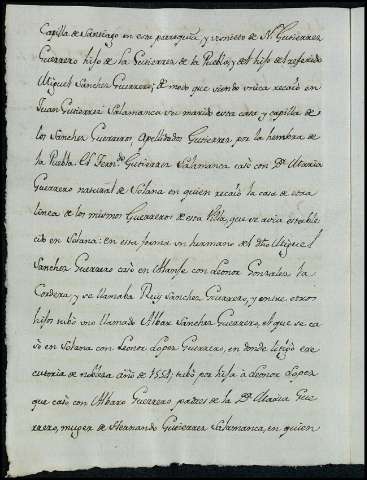 Capilla de Santiago en esta parroquia, y vinieto de Nª Gutierrez
Guerrero hijo de la Gutierrez de la Puebla, y del hijo del referido
Miguel Sanchez Guerrero; de modo que siendo unica recaió en
Juan Gutierrez Salamanca su marido esta casa y capilla de
los Sanchez Guerreros Apellidados Gutierrez por la hembra de
la Puebla. El Fernᵈᵒ Gutierrez Salamanca casó con Dª Maria
Guerrero natural de Solana en quien recaió la casa de otra
linea de los mismos Guerreros de esta Villa, que se avia estable
cido en Solana: En esta forma un hermano del dho Miguel
Sanchez Guerrero casó en con Leonor Gonzalez la
Cordera, y se llamaba Ruy Sanchez Guerrero, y entre otros
hijos tubo uno llamado Albar Sanchez Guerrero, el que se ca
só en Solana con Leonor Lopez Guerrero, en donde litigó exe
cutoria de nobleza año de 1554; tubo por hija a Leonor Lopez
que casó con Albaro Guerrero padres de la Dª Maria Gue
rrero, muger de Hernando Gutierrez Salamanca, en quien